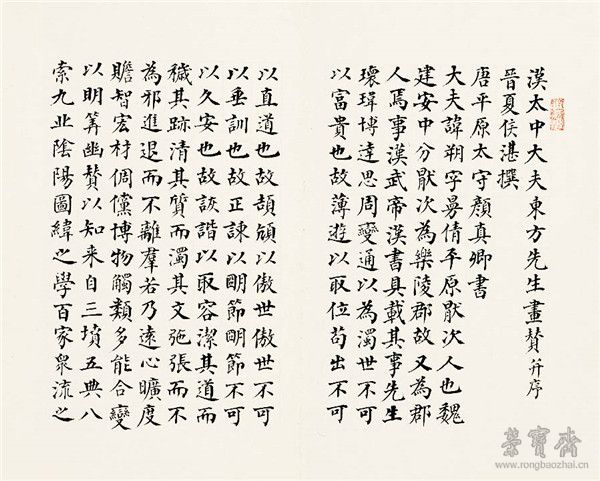 漢太中大夫東方先生畫贊并序
晉夏侯湛撰
唐平原太守顏真卿書
大夫諱朔字曼倩平原猒次人也魏
建安中分猒次為樂陵郡故又為郡
人焉事漢武帝漢書具載其事先生
瓌瑋博達思周變通以為濁世不可
以富貴也故薄遊以取位苟出不可
以直道也故頡頏以傲世傲世不可
以垂訓也故正諫以明節明節不可
以久安也故詼諧以取容潔其道而
穢其跡清其質而濁其文弛張而不
為邪進退而不離羣若乃遠心曠度
贍智宏材倜儻博物觸類多能合變
以明筭幽贊以知来自三墳五典八
索九丘陰陽圖緯之學百家眾流之
榮寶齋
www.rongbaozhai.cn